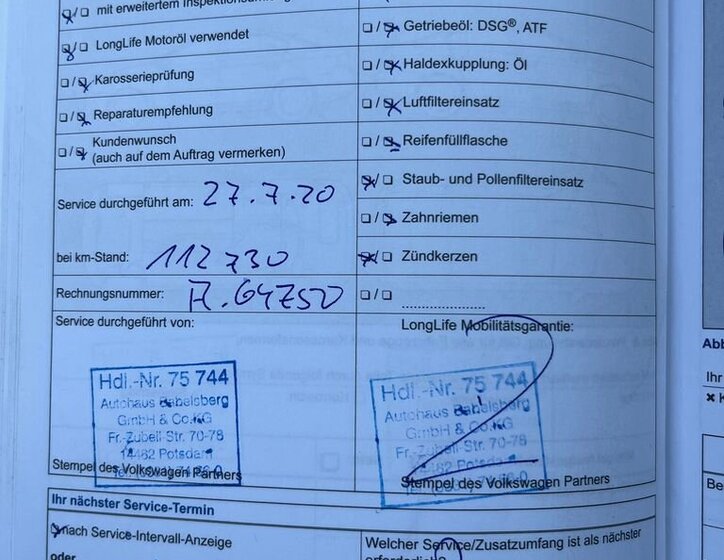 mit erweitertem Inspektionsumfang
❑ / ❑ LongLife Motoröl verwendet
❑ / ❑ Karosserieprüfung
❑ / ❑ Reparaturempfehlung
❑ / ❑ Kundenwunsch
(auch auf dem Auftrag vermerken)
Service durchgeführt am: 27.7.20
bei km-Stand: 112 730
Rechnungsnummer: A. 64750
Service durchgeführt von:
Hdl.-Nr. 75 744
Autohaus Babelsberg
GmbH & Co.KG
Fr.-Zubeil-Str. 70-78
14482 Potsdam
Stempel des Volkswagen Partners
❑ / ❑ Getriebeöl: DSG®, ATF
❑ / ❑ Haldexkupplung: Öl
❑ / ❑ Luftfiltereinsatz
❑ / ❑ Reifenfüllflasche
❑ / ❑ Staub- und Pollenfiltereinsatz
❑ / ❑ Zahnriemen
❑ / ❑ Zündkerzen
❑ / ❑
LongLife Mobilitätsgarantie:
Hdl.-Nr. 75 744
Autohaus Babelsberg
GmbH & Co.KG
Fr.-Zubeil-Str. 70-78
14482 Potsdam
Stempel des Volkswagen Partners
Ihr nächster Service-Termin
❑ nach Service-Intervall-Anzeige
oder
Welcher Service/Zusatzumfang ist als nächster
erforderlich?
Abb
Ihr
Be